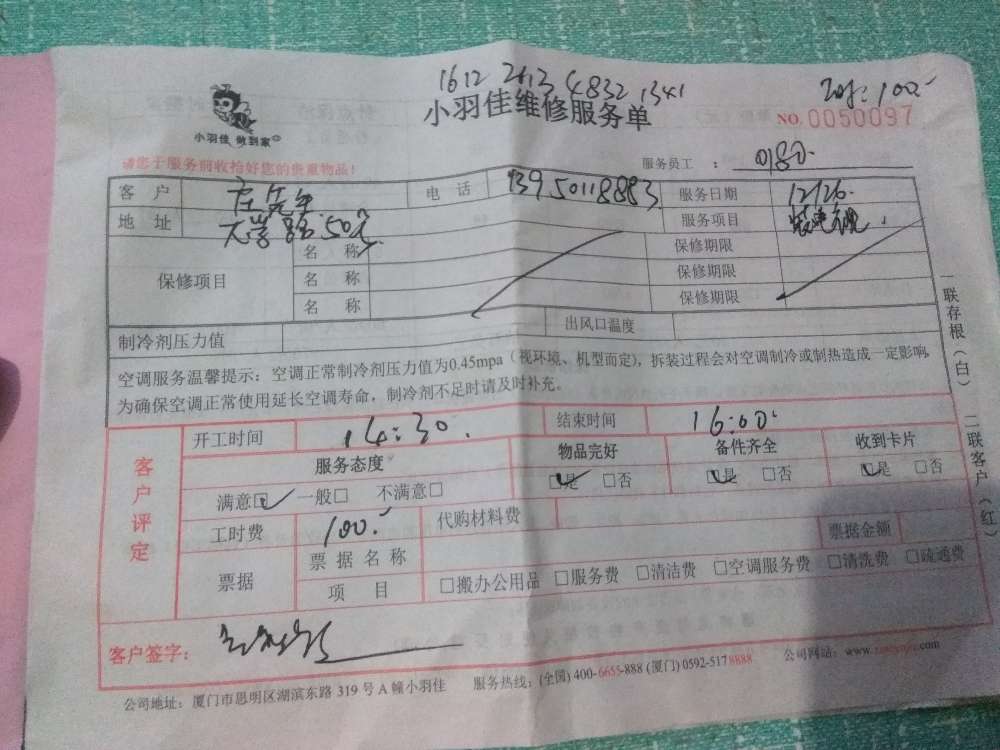 1612 2613 4832 1341
100
小羽佳 做到家
小羽佳维修服务单
NO. 0050097
请您于服务前收拾好您的贵重物品!
服务员工 : 0180
客 户 庄先生 电 话 13950118883 服务日期 12/26
地 址 服务项目
保修项目 名 称 保修期限
名 称 保修期限
名 称 保修期限
制冷剂压力值 出风口温度
空调服务温馨提示:空调正常制冷剂压力值为0.45mpa(视环境、机型而定),拆装过程会对空调制冷或制热造成一定影响,
为确保空调正常使用延长空调寿命,制冷剂不足时请及时补充。
客户评定
开工时间 14:30 结束时间 16:00
服务态度 物品完好 备件齐全 收到卡片
满意□ 一般□ 不满意□ □是 □否 □是 □否 □是 □否
工时费 100 代购材料费 票据金额
票据 票据名称
项 目 □搬办公用品 □服务费 □清洁费 □空调服务费 □清洗费 □疏通费
客户签字:
公司地址:厦门市思明区湖滨东路 319 号 A 幢小羽佳 服务热线:(全国) 400-6655-888 (厦门) 0592-5178888 公司网站:www.xiaoyujia.com
一联存根(白) 二联客户(红)